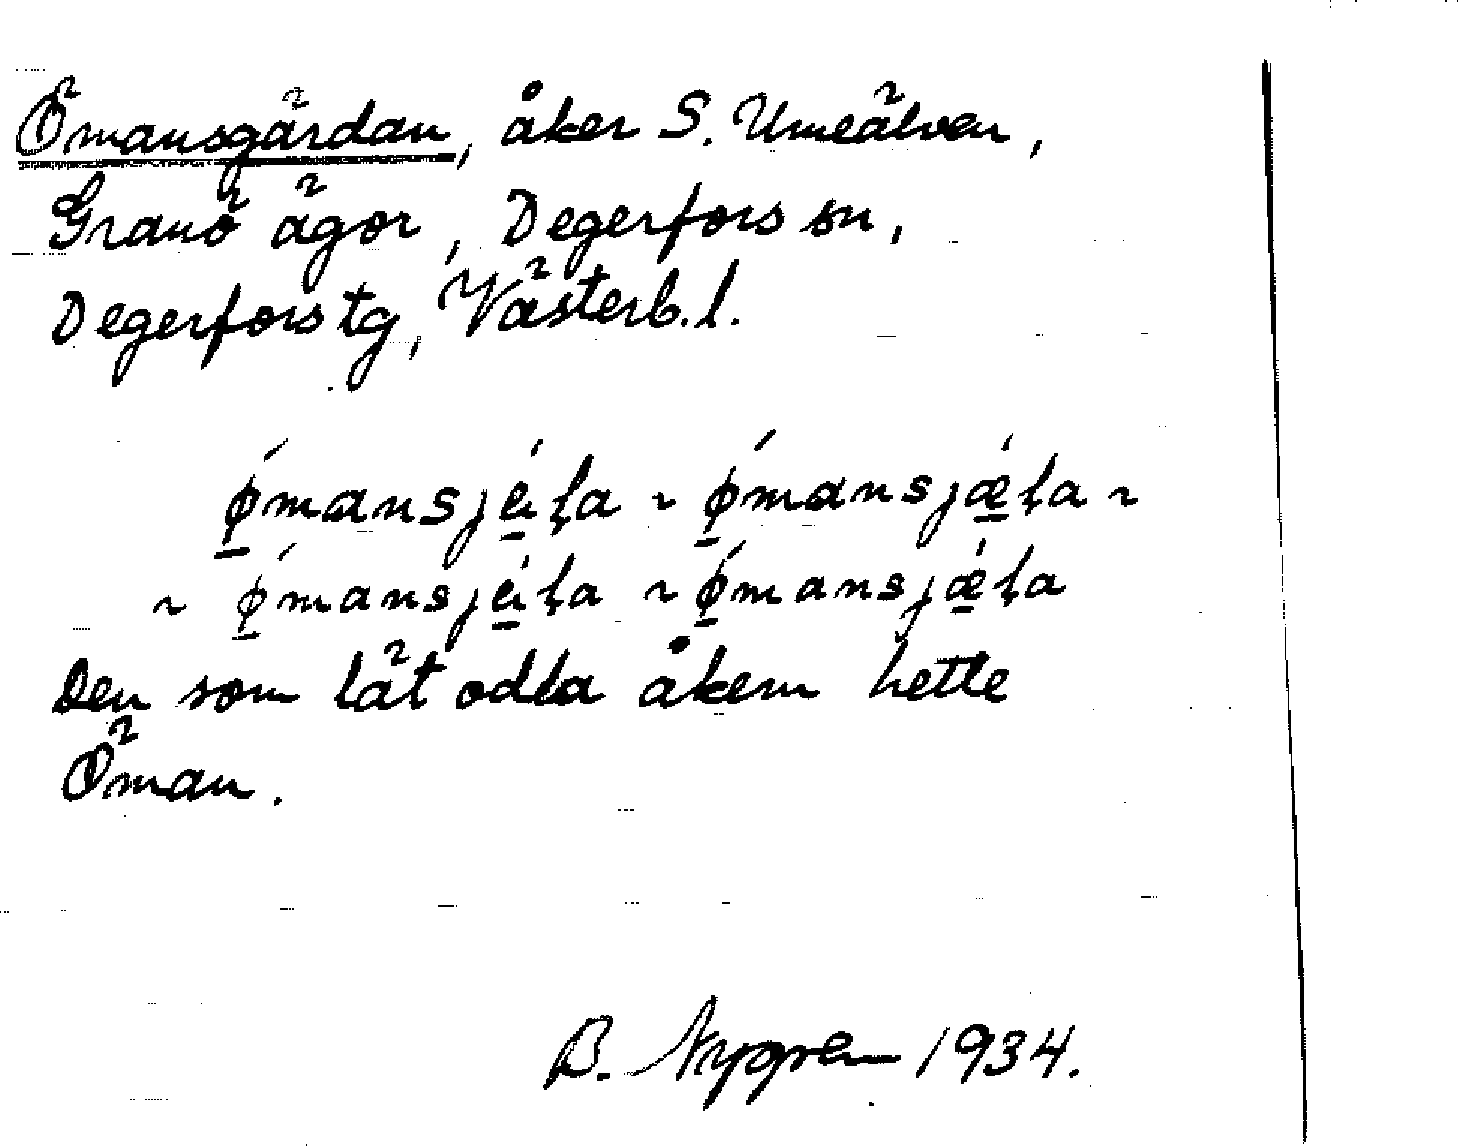 Ömansgärdan, åker S. Umeälven,
Granö ägor, Degerfors sn,
Degerfors tg, Västerb. l.
ǿ̱mansjé̱ḷa ~ ǿ̱mansjǽ̱ḷa ~
~ ǿ̱mansjé̱ḷa ~ ǿ̱mansjǽ̱ḷa
Den som lät odla åkern hette
Öman.
B. Nygren 1934.